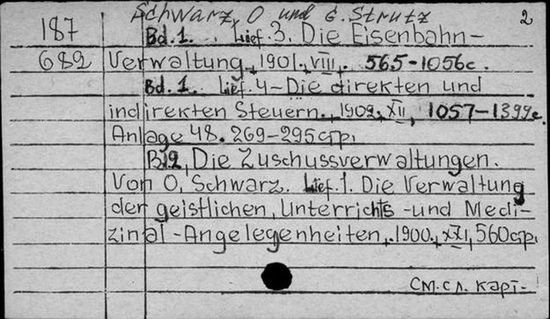 Schwarz, O und G. Strutz 2
187 Bd. 1. Lief. 3. Die Eisenbahn-
682 Verwaltung, 1901, VIII, 565-1056 c.
Bd. 1. Lief. 4-Die direkten und
indirekten Steuern., 1902, XII, 1057-1399 c.
Anlage 48. 269-295 стр.
Bd 2, Die Zuschussverwaltungen.
Von O, Schwarz. Lief. 1. Die Verwaltung
der geistlichen, Unterrichts-und Medi-
zinal-Angelegenheiten, 1900., XXI, 560 стр.
См. сл. карт-